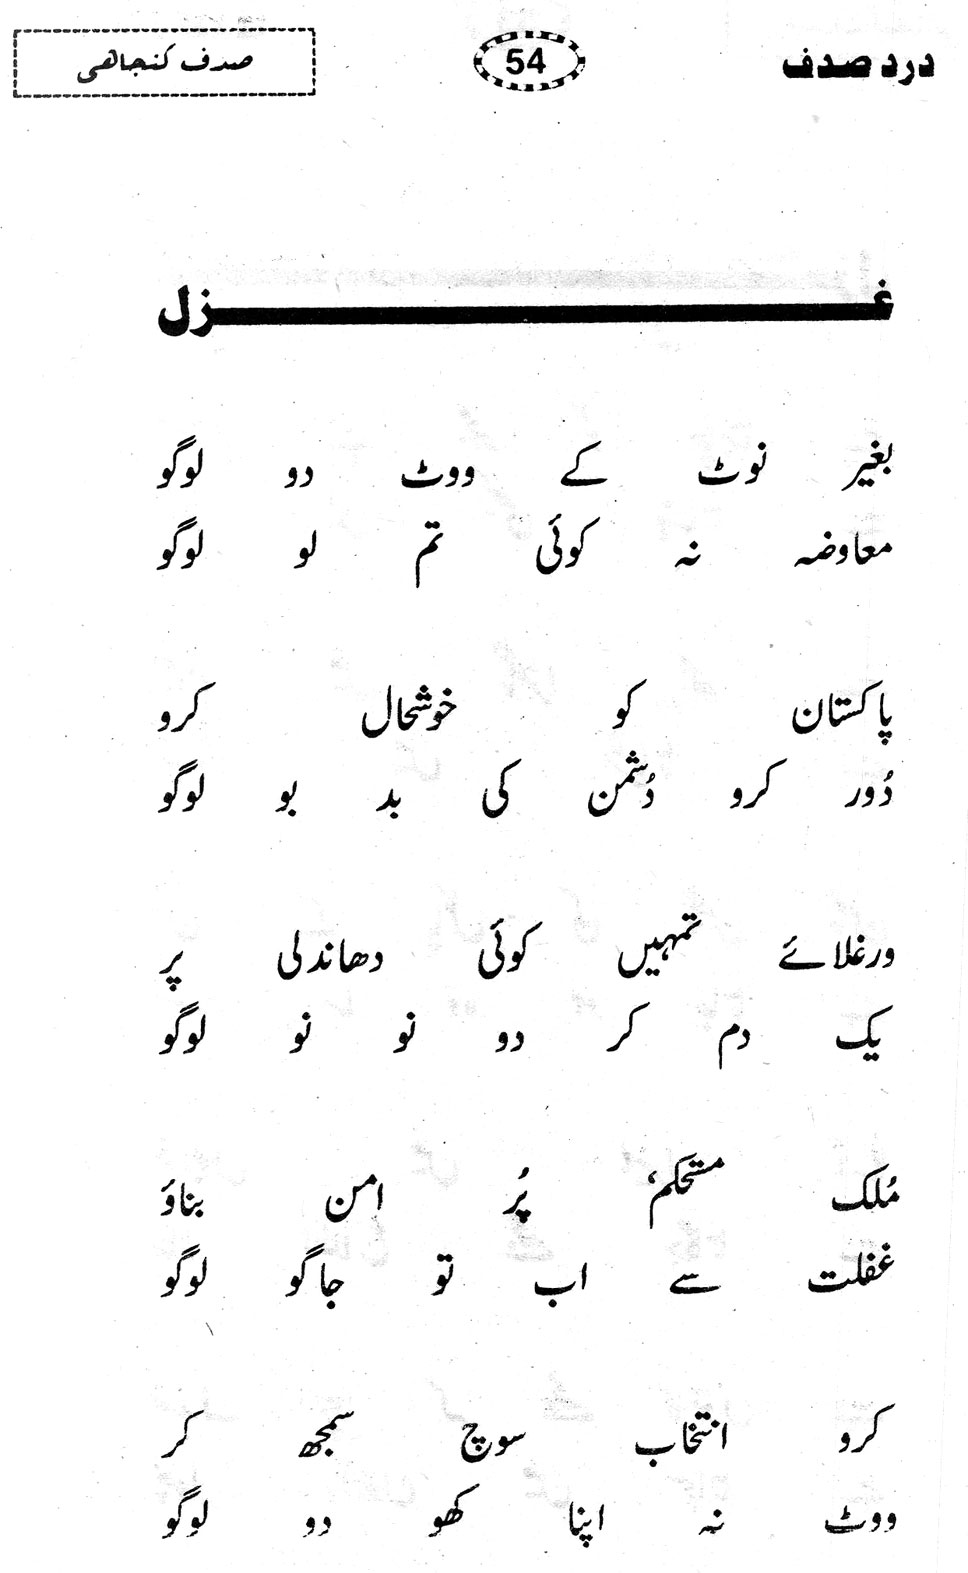 درد صدف
54
صدف کنجاھی
غزل
بغیر نوٹ کے ووٹ دو لوگو
معاوضہ نہ کوئی تم لو لوگو
پاکستان کو خوشحال کرو
دُور کرو دُشمن کی بد بو لوگو
ورغلائے تمہیں کوئی دھاندلی پر
یک دم کر دو نو نو لوگو
مُلک مستحکم، پُر امن بناؤ
غفلت سے اب تو جاگو لوگو
کرو انتخاب سوچ سمجھ کر
ووٹ نہ اپنا کھو دو لوگو